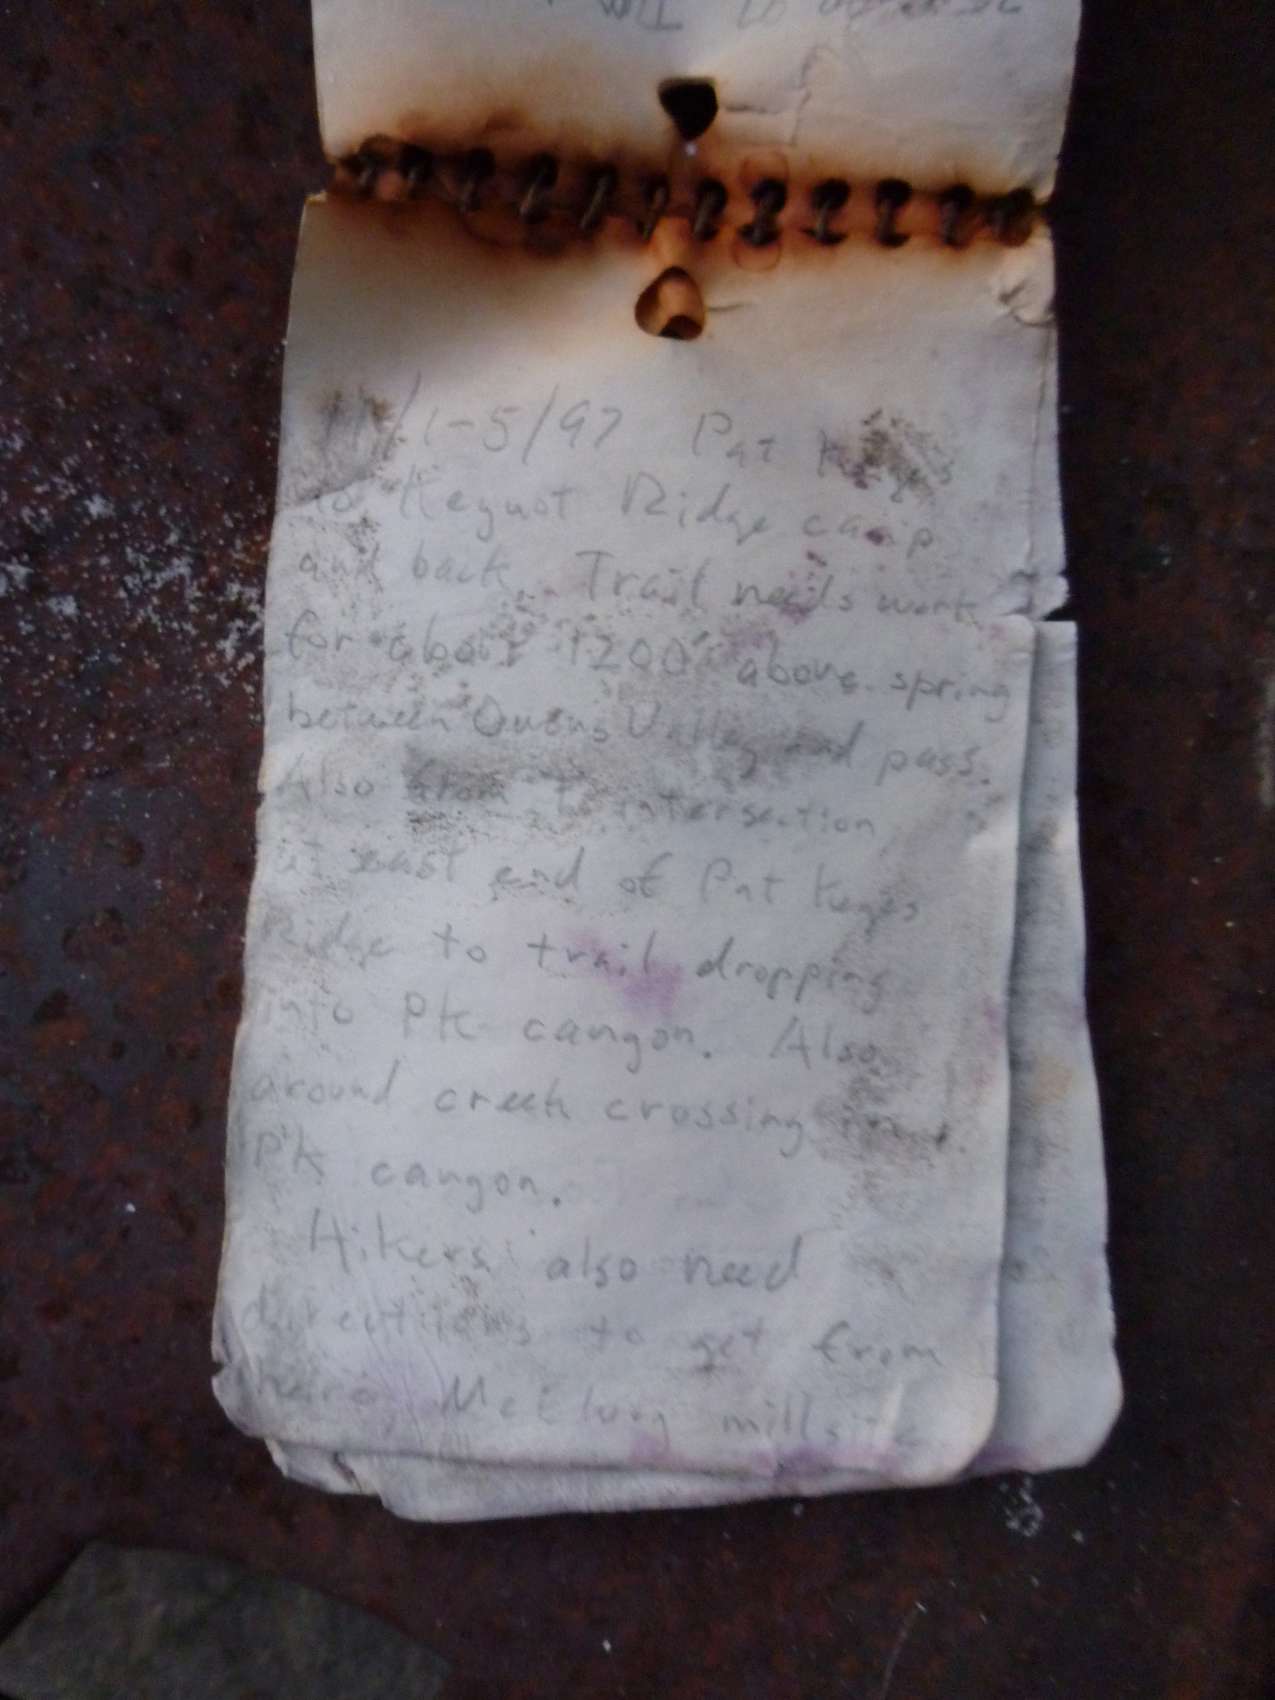 11/1-5/97 Pat Keyes
to Keynot Ridge camp
and back. Trail needs work
for about 1200' above spring
between Owens Valley and pass.
Also from intersection
at east end of Pat Keyes
Ridge to trail dropping
into PK canyon. Also
around creek crossing in
PK canyon.
Hikers also need
directions to get from
here, McElvoy millsite